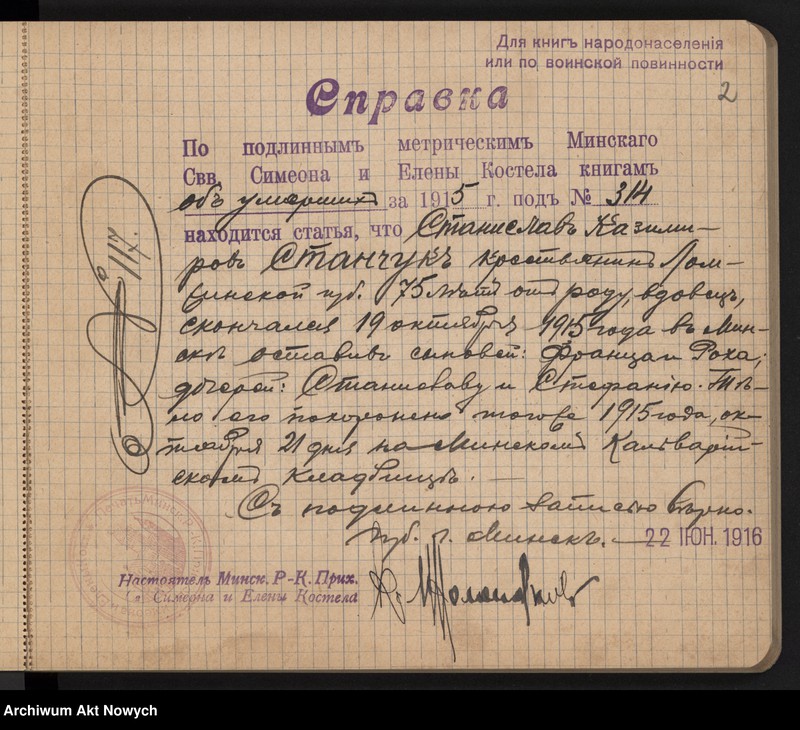 Для книгъ народонаселенія
или по воинской повинности
2
Справка
По подлиннымъ метрическимъ Минскаго
Свв. Симеона и Елены Костела книгамъ
объ умершихъ за 1915 г. подъ № 314
находится статья, что Станиславъ Казими-
ровъ Станчукъ крестьянинъ Лом-
жинской губ. 75 лѣтъ отъ роду, вдовецъ,
скончался 19 октября 1915 года въ Мин-
скѣ оставивъ сыновей: Франца и Роха,
дочерей: Станиславу и Стефанію. Тѣ-
ло его похоронено тогоже 1915 года, ок-
тября 21 дня на Минскомъ Кальварій-
скомъ кладбищѣ.
Съ подлинною записью вѣрно.
Губ. г. Минскъ. 22 ІЮН. 1916
Настоятель Минск. Р-К. Прих.
Симеона и Елены Костела
Archiwum Akt Nowych